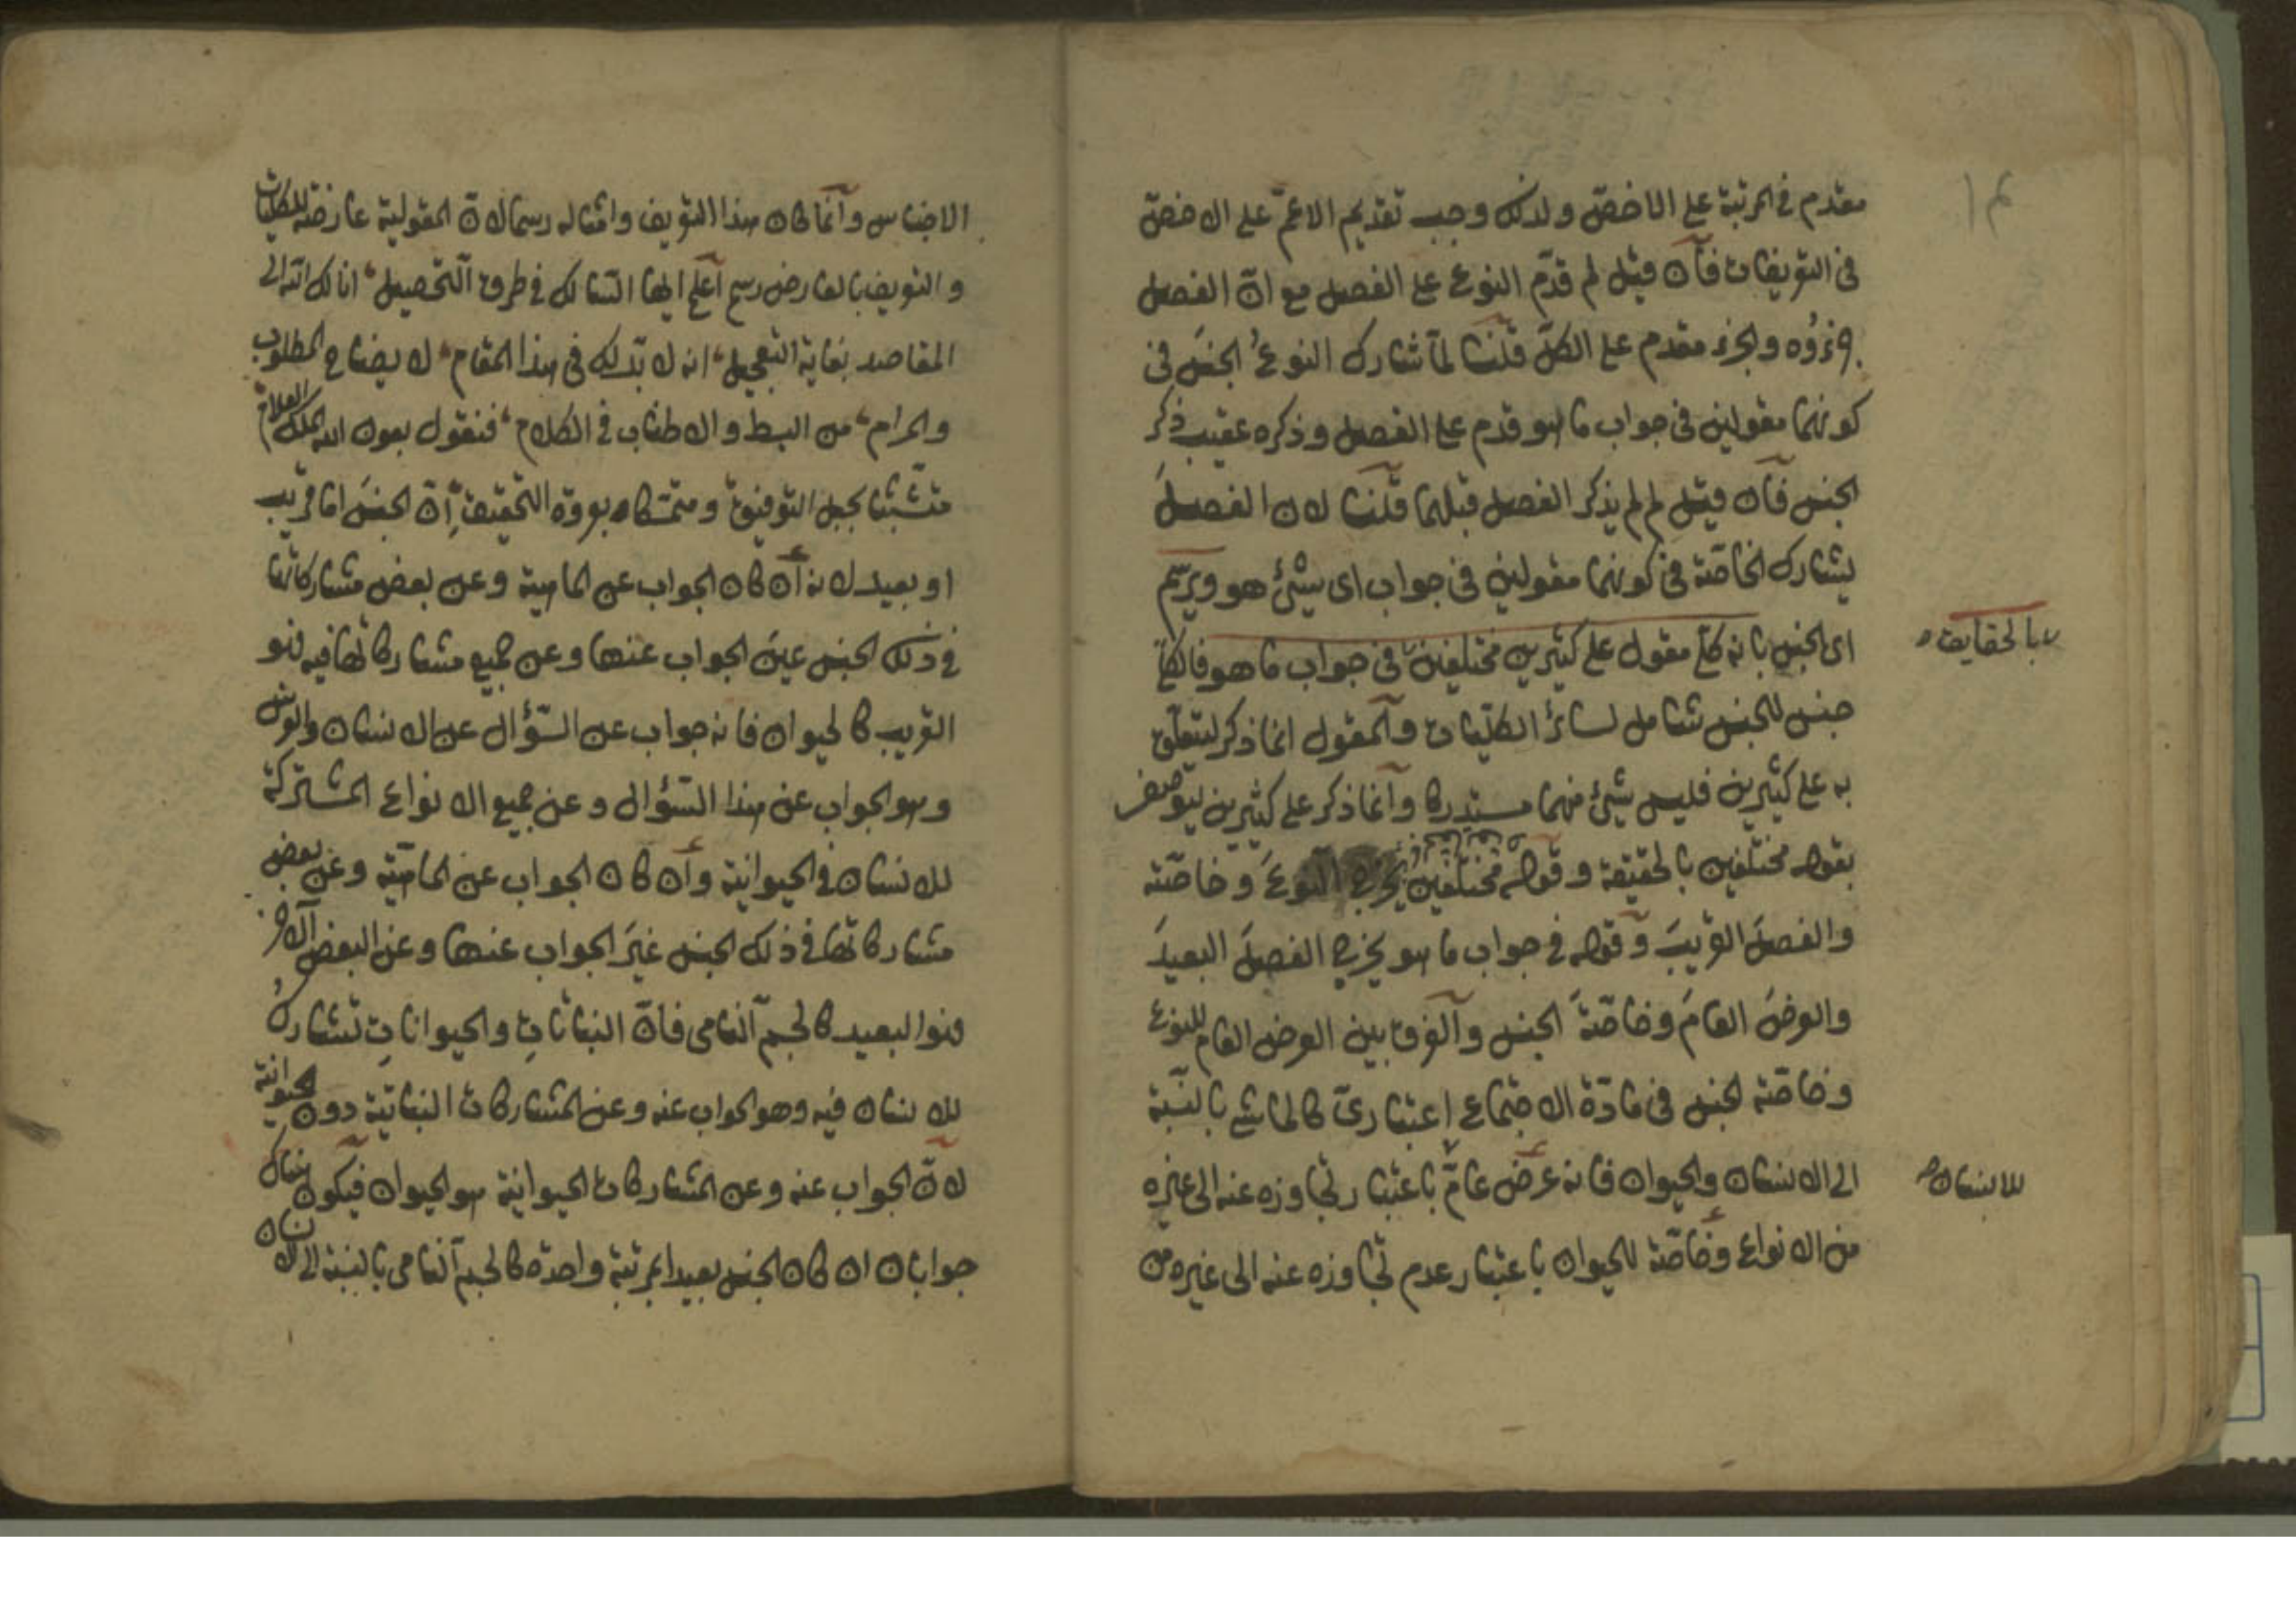 مقدم فى المرتبة على الاخصّ ولذلك وجب تقديم الاعمّ على الاخصّ
فى التعريفات فان قيل لم قدّم النوع على الفصل مع انّ الفصل
جزؤه والجزء مقدم على الكلّ قلنا لمّا شارك النوعُ الجنسَ فى
كونهما مقولين فى جواب ما هو قدم على الفصل وذكره عقيب ذكر
الجنس فان قيل لم لم يذكر الفصل قبلهما قلنا لان الفصلَ
يشارك الخاصّة فى كونهما مقولين فى جواب اى شيئ هو ويرسم
اى الجنس بانه كلّى مقول على كثيرين مختلفين فى جواب ما هو فالكلّى
بالحقايق
جنس للجنس شامل لسائر الكلّيات والمقول انما ذكر ليتعلّق
به على كثيرين فليس شيئ منهما مستدركا وانما ذكر على كثيرين ليوصف
بقوله مختلفين بالحقيقة وقوله مختلفين يخرج النوعَ وخاصّته
والفصلَ القريبَ وقوله فى جواب ما هو يخرج الفصلَ البعيدَ
والعرضَ العامَ وخاصّةَ الجنس والفرق بين العرض العام للنوع
وخاصّة الجنس فى مادّة الاجتماع اعتبارىّ كالماشى بالنّسبة
الى الانسان والحيوان فانه عرض عامّ باعتبار تجاوزه عنه الى غيره
للانسان
من الانواع وخاصّة للحيوان باعتبار عدم تجاوزه عنه الى غيره من
الاجناس وانما كان هذا التعريف وامثاله رسما لانّ المقولية عارضة للكليات
والتعريف بالعارض رسم اعلم ايها السّالك فى طرق التحصيل انالك الله الى
المقاصد بغاية التعجيل انه لا بدّ لك فى هذا المقام لايضاح المطلوب
والمرام من البسط والاطناب فى الكلام فنقول بعون الله الملك العلام
متشبّثا بحبل التوفيق ومتمسّكا بعروة التحقيق اِنّ الجنسَ اما قريب
او بعيد لانه ان كان الجواب عن الماهية وعن بعض مشاركاتها
فى ذلك الجنس عينَ الجواب عنها وعن جميع مشاركاتها فيه فهو
القريب كالحيوان فانه جواب عن السّؤال عن الانسان والفرس
وهو الجواب عن هذا السّؤال وعن جميع الانواع المشتركة
للانسان فى الحيوانية وان كان الجواب عن الماهيّة وعن بعض
مشاركاتها فى ذلك الجنس غيرَ الجواب عنها وعن البعض الآخر
فهو البعيد كالجسم النامى فانّ النباتاتِ والحيواناتِ تشارك
للانسان فيه وهو الجواب عنه وعن المشاركات النباتية دون الحيوانية
لانّ الجواب عنه وعن المشاركات الحيوانية هو الحيوان فيكون هناك
جوابان ان كان الجنس بعيدا بمرتبة واحدة كالجسم النامى بالنسبة الى الانسان